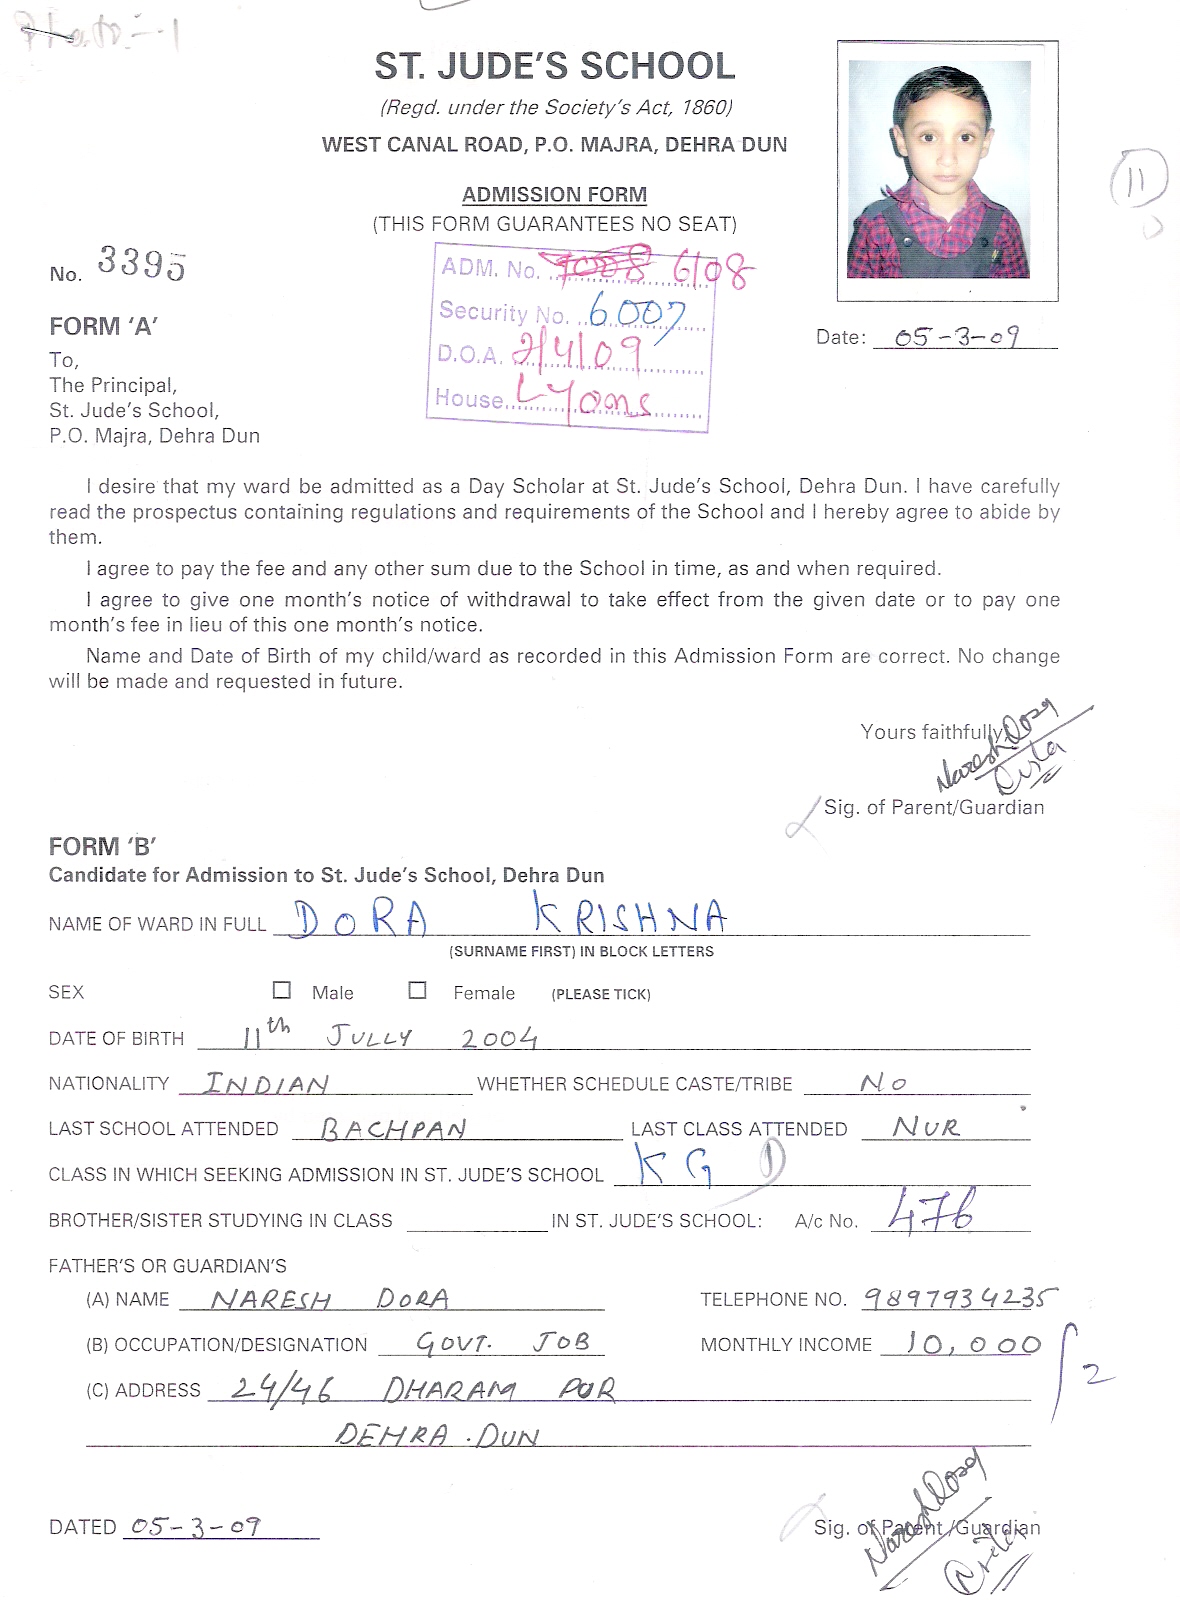 Photo - 1
ST. JUDE'S SCHOOL
(Regd. under the Society's Act, 1860)
WEST CANAL ROAD, P.O. MAJRA, DEHRA DUN
ADMISSION FORM
(THIS FORM GUARANTEES NO SEAT)
11
No. 3395
ADM. No. 6108
Security No. 6007
D.O.A. 2/4/09
House Lyons
Date: 05-3-09
FORM 'A'
To,
The Principal,
St. Jude's School,
P.O. Majra, Dehra Dun
I desire that my ward be admitted as a Day Scholar at St. Jude's School, Dehra Dun. I have carefully
read the prospectus containing regulations and requirements of the School and I hereby agree to abide by
them.
I agree to pay the fee and any other sum due to the School in time, as and when required.
I agree to give one month's notice of withdrawal to take effect from the given date or to pay one
month's fee in lieu of this one month's notice.
Name and Date of Birth of my child/ward as recorded in this Admission Form are correct. No change
will be made and requested in future.
Yours faithfully,
Naresh Dora
Sig. of Parent/Guardian
FORM 'B'
Candidate for Admission to St. Jude's School, Dehra Dun
NAME OF WARD IN FULL DORA KRISHNA
(SURNAME FIRST) IN BLOCK LETTERS
SEX Male Female (PLEASE TICK)
DATE OF BIRTH 11th JULLY 2004
NATIONALITY INDIAN WHETHER SCHEDULE CASTE/TRIBE NO
LAST SCHOOL ATTENDED BACHPAN LAST CLASS ATTENDED NUR
CLASS IN WHICH SEEKING ADMISSION IN ST. JUDE'S SCHOOL KG D
BROTHER/SISTER STUDYING IN CLASS IN ST. JUDE'S SCHOOL: A/c No. 476
FATHER'S OR GUARDIAN'S
(A) NAME NARESH DORA TELEPHONE NO. 9897934235
(B) OCCUPATION/DESIGNATION GOVT. JOB MONTHLY INCOME 10,000
(C) ADDRESS 24/46 DHARAM PUR 2
DEHRA.DUN
DATED 05-3-09 Sig. of Parent/Guardian
Naresh Dora